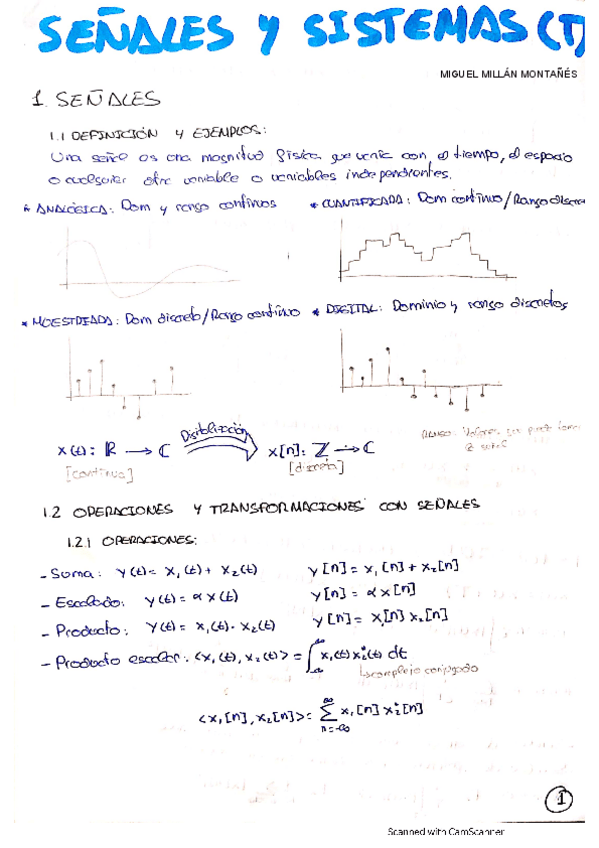 SEÑALES Y SISTEMAS (T)
MIGUEL MILLÁN MONTAÑÉS
1. SEÑALES
1.1 DEFINICIÓN Y EJEMPLOS:
Una señal es una magnitud física que varía con el tiempo, el espacio
o cualquier otra variable o variables independientes.
* ANALÓGICA: Dom y rango continuos
* CUANTIFICADA: Dom continuo/Rango discre
* MUESTREADA: Dom discreto/Rango continuo
* DIGITAL: Dominio y rango discretos
x(t): ℝ → ℂ
Digitalización
x[n]: ℤ → ℂ
RANGO: Valores que puede tomar
[continua]
[discreta]
la señal
1.2 OPERACIONES Y TRANSFORMACIONES CON SEÑALES
1.2.1 OPERACIONES:
- Suma: y(t) = x₁(t) + x₂(t) y[n] = x₁[n] + x₂[n]
- Escalado: y(t) = α x(t) y[n] = α x[n]
- Producto: y(t) = x₁(t) · x₂(t) y[n] = x₁[n] x₂[n]
- Producto escalar: <x₁(t), x₂(t)> = ∫_{-∞}^{∞} x₁(t) x₂*(t) dt
↳ complejo conjugado
<x₁[n], x₂[n]> = Σ_{n=-∞}^{∞} x₁[n] x₂*[n]
1
Scanned with CamScanner